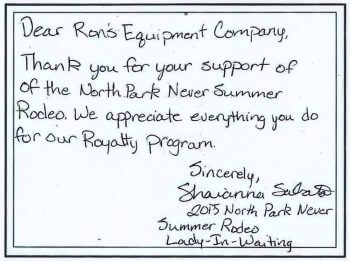 Dear Ron's Equipment Company,
Thank you for your support of
of the North Park Never Summer
Rodeo. We appreciate everything you do
for our Royalty program.
Sincerely,
2015 North Park Never
Summer Rodeo
Lady-In-Waiting